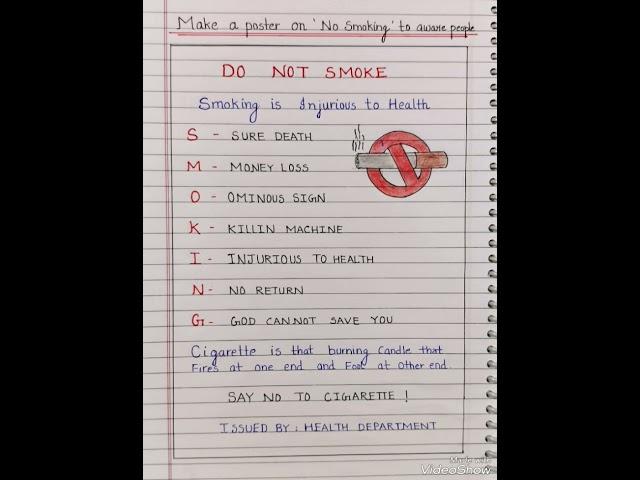 Make a poster on 'No Smoking' to aware people
DO NOT SMOKE
Smoking is Injurious to Health
S - SURE DEATH
M - MONEY LOSS
O - OMINOUS SIGN
K - KILLIN MACHINE
I - INJURIOUS TO HEALTH
N - NO RETURN
G - GOD CANNOT SAVE YOU
Cigarette is that burning Candle that
Fires at one end and Fool at other end.
SAY NO TO CIGARETTE !
ISSUED BY : HEALTH DEPARTMENT
Made with
VideoShow